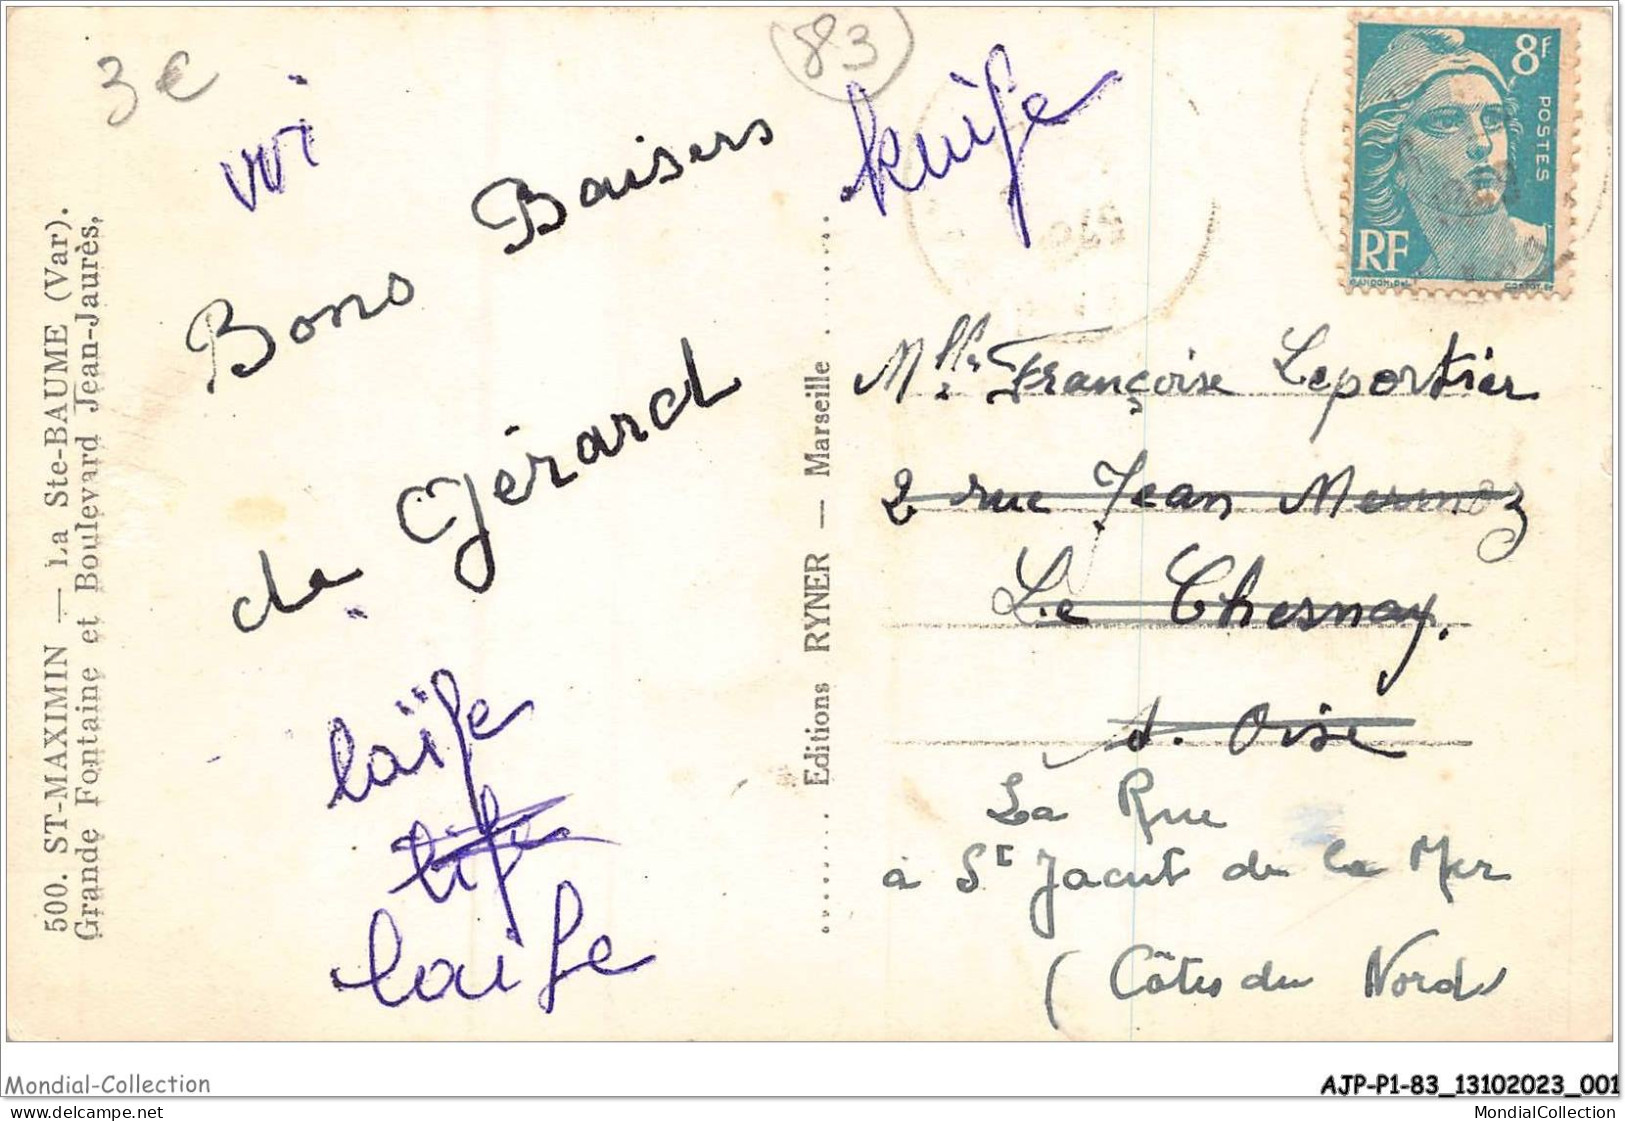 3€
83
8F
POSTES
RF
500. ST-MAXIMIN — La Ste-BAUME (Var).
Grande Fontaine et Boulevard Jean-Jaurès,
Bons Baisers
de Gérard
laïfe
laife
Editions RYNER — Marseille
Mlle Françoise Leportier
2 rue Jean Mermoz
Le Chesnay.
Oise
La Rue
à St Jacut de la Mer
(Côtes du Nord)
Mondial-Collection
AJP-P1-83_13102023_001
www.delcampe.net
MondialCollection